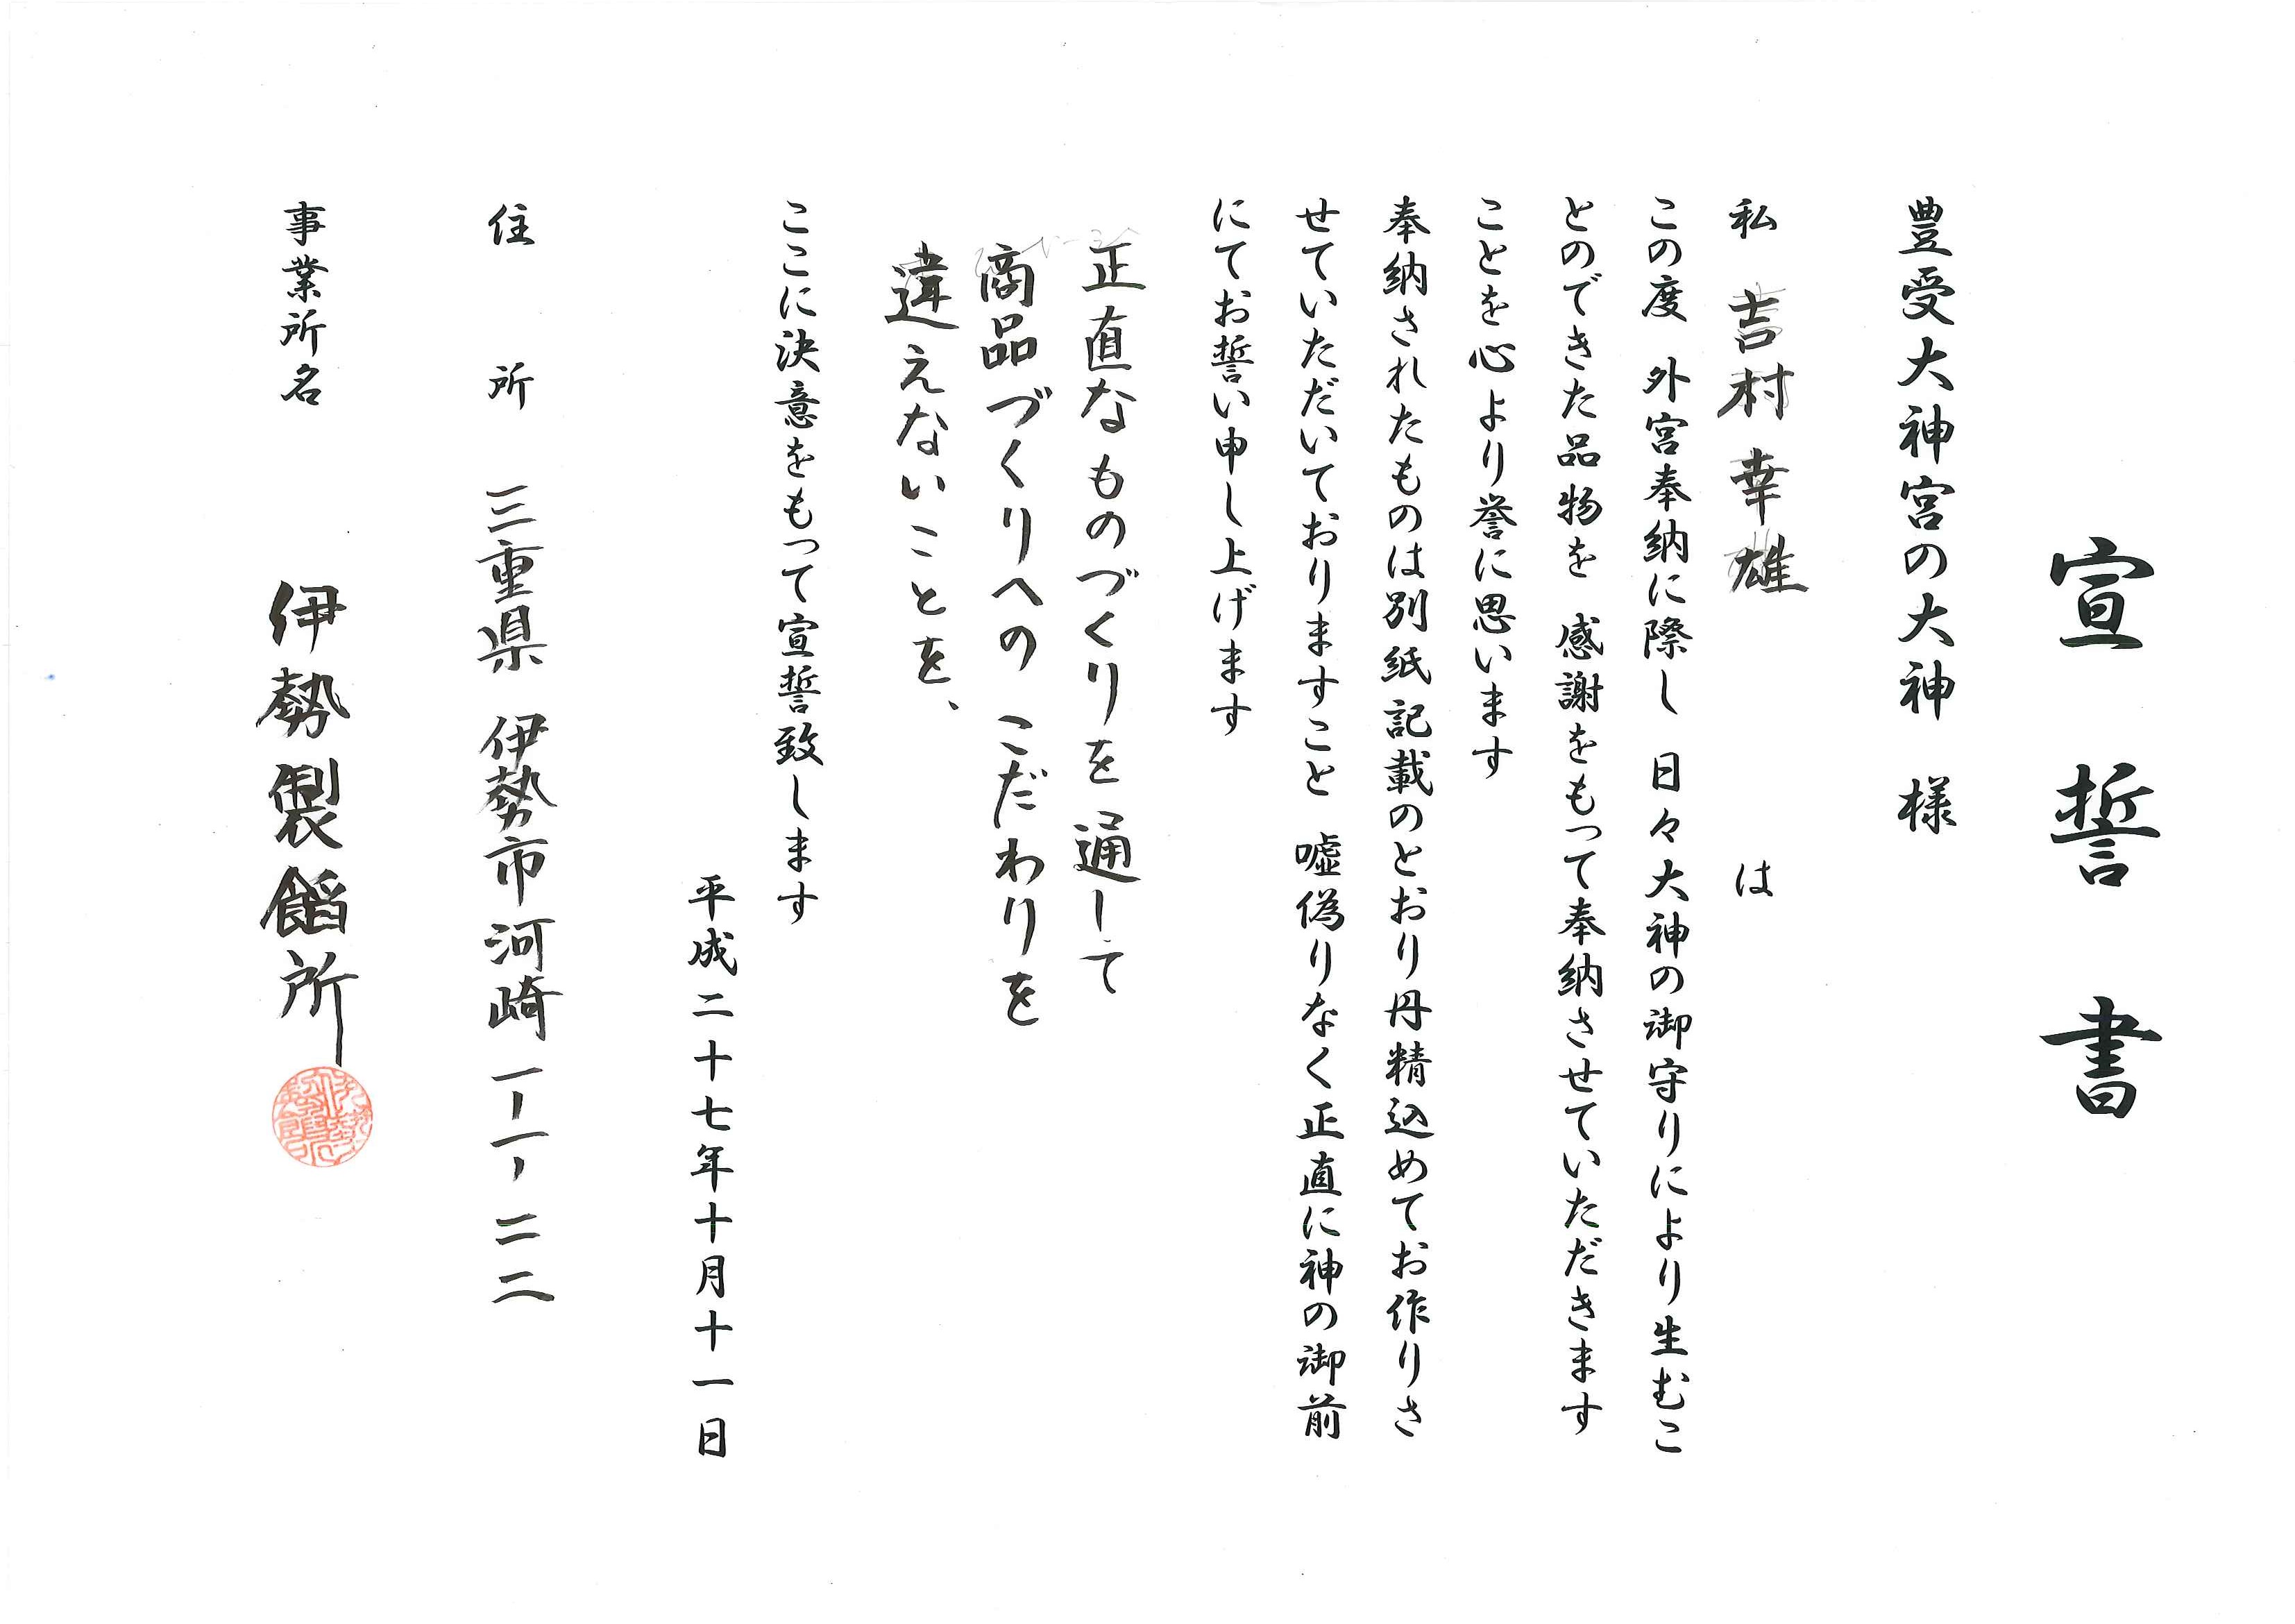 宣誓書
豊受大神宮の大神　様
私　吉村　幸雄　は
この度　外宮奉納に際し　日々大神の御守りにより生むこ
とのできた品物を　感謝をもって奉納させていただきます
ことを心より誉に思います
奉納されたものは別紙記載のとおり丹精込めてお作りさ
せていただいておりますこと　嘘偽りなく正直に神の御前
にてお誓い申し上げます
正直なものづくりを通して
商品づくりへのこだわりを
違えないことを、
ここに決意をもって宣誓致します
平成二十七年十月十一日
住　所　三重県　伊勢市河崎一ー一ー二二
事業所名　伊勢製餡所